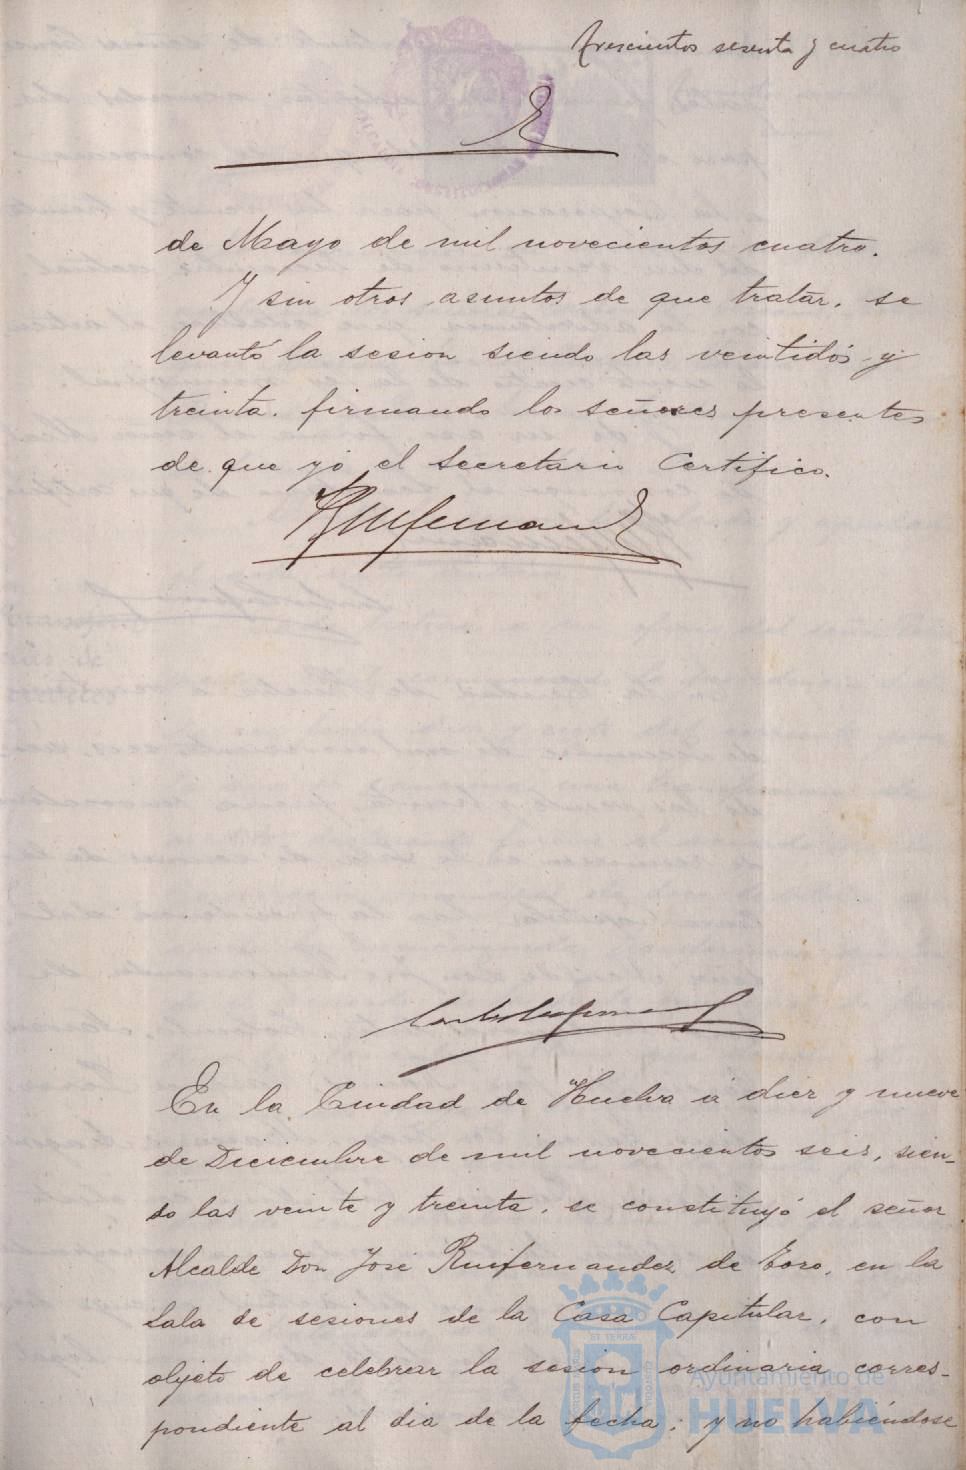 Trescientos sesenta y cuatro
de Mayo de mil novecientos cuatro.
Y sin otros asuntos de que tratar, se
levantó la sesion siendo las veintidós y
treinta, firmando los señores presentes
de que yo el Secretario Certifico.
En la Ciudad de Huelva á diez y nueve
de Diciembre de mil novecientos seis, sien-
do las veinte y treinta, se constituyó el señor
Alcalde Don José Ruifernandez de Toro, en la
Sala de sesiones de la Casa Capitular, con
objeto de celebrar la sesion ordinaria corres-
pondiente al dia de la fecha; y no habiéndose
Ayuntamiento de
HUELVA